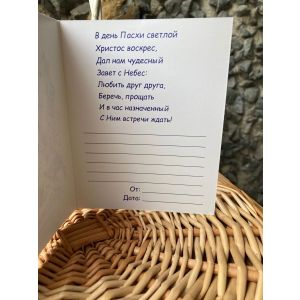 В день Пасхи светлой
Христос воскрес,
Дал нам чудесный
Завет с Небес:
Любить друг друга,
Беречь, прощать
И в час назначенный
С Ним встречи ждать!
От:
Дата: